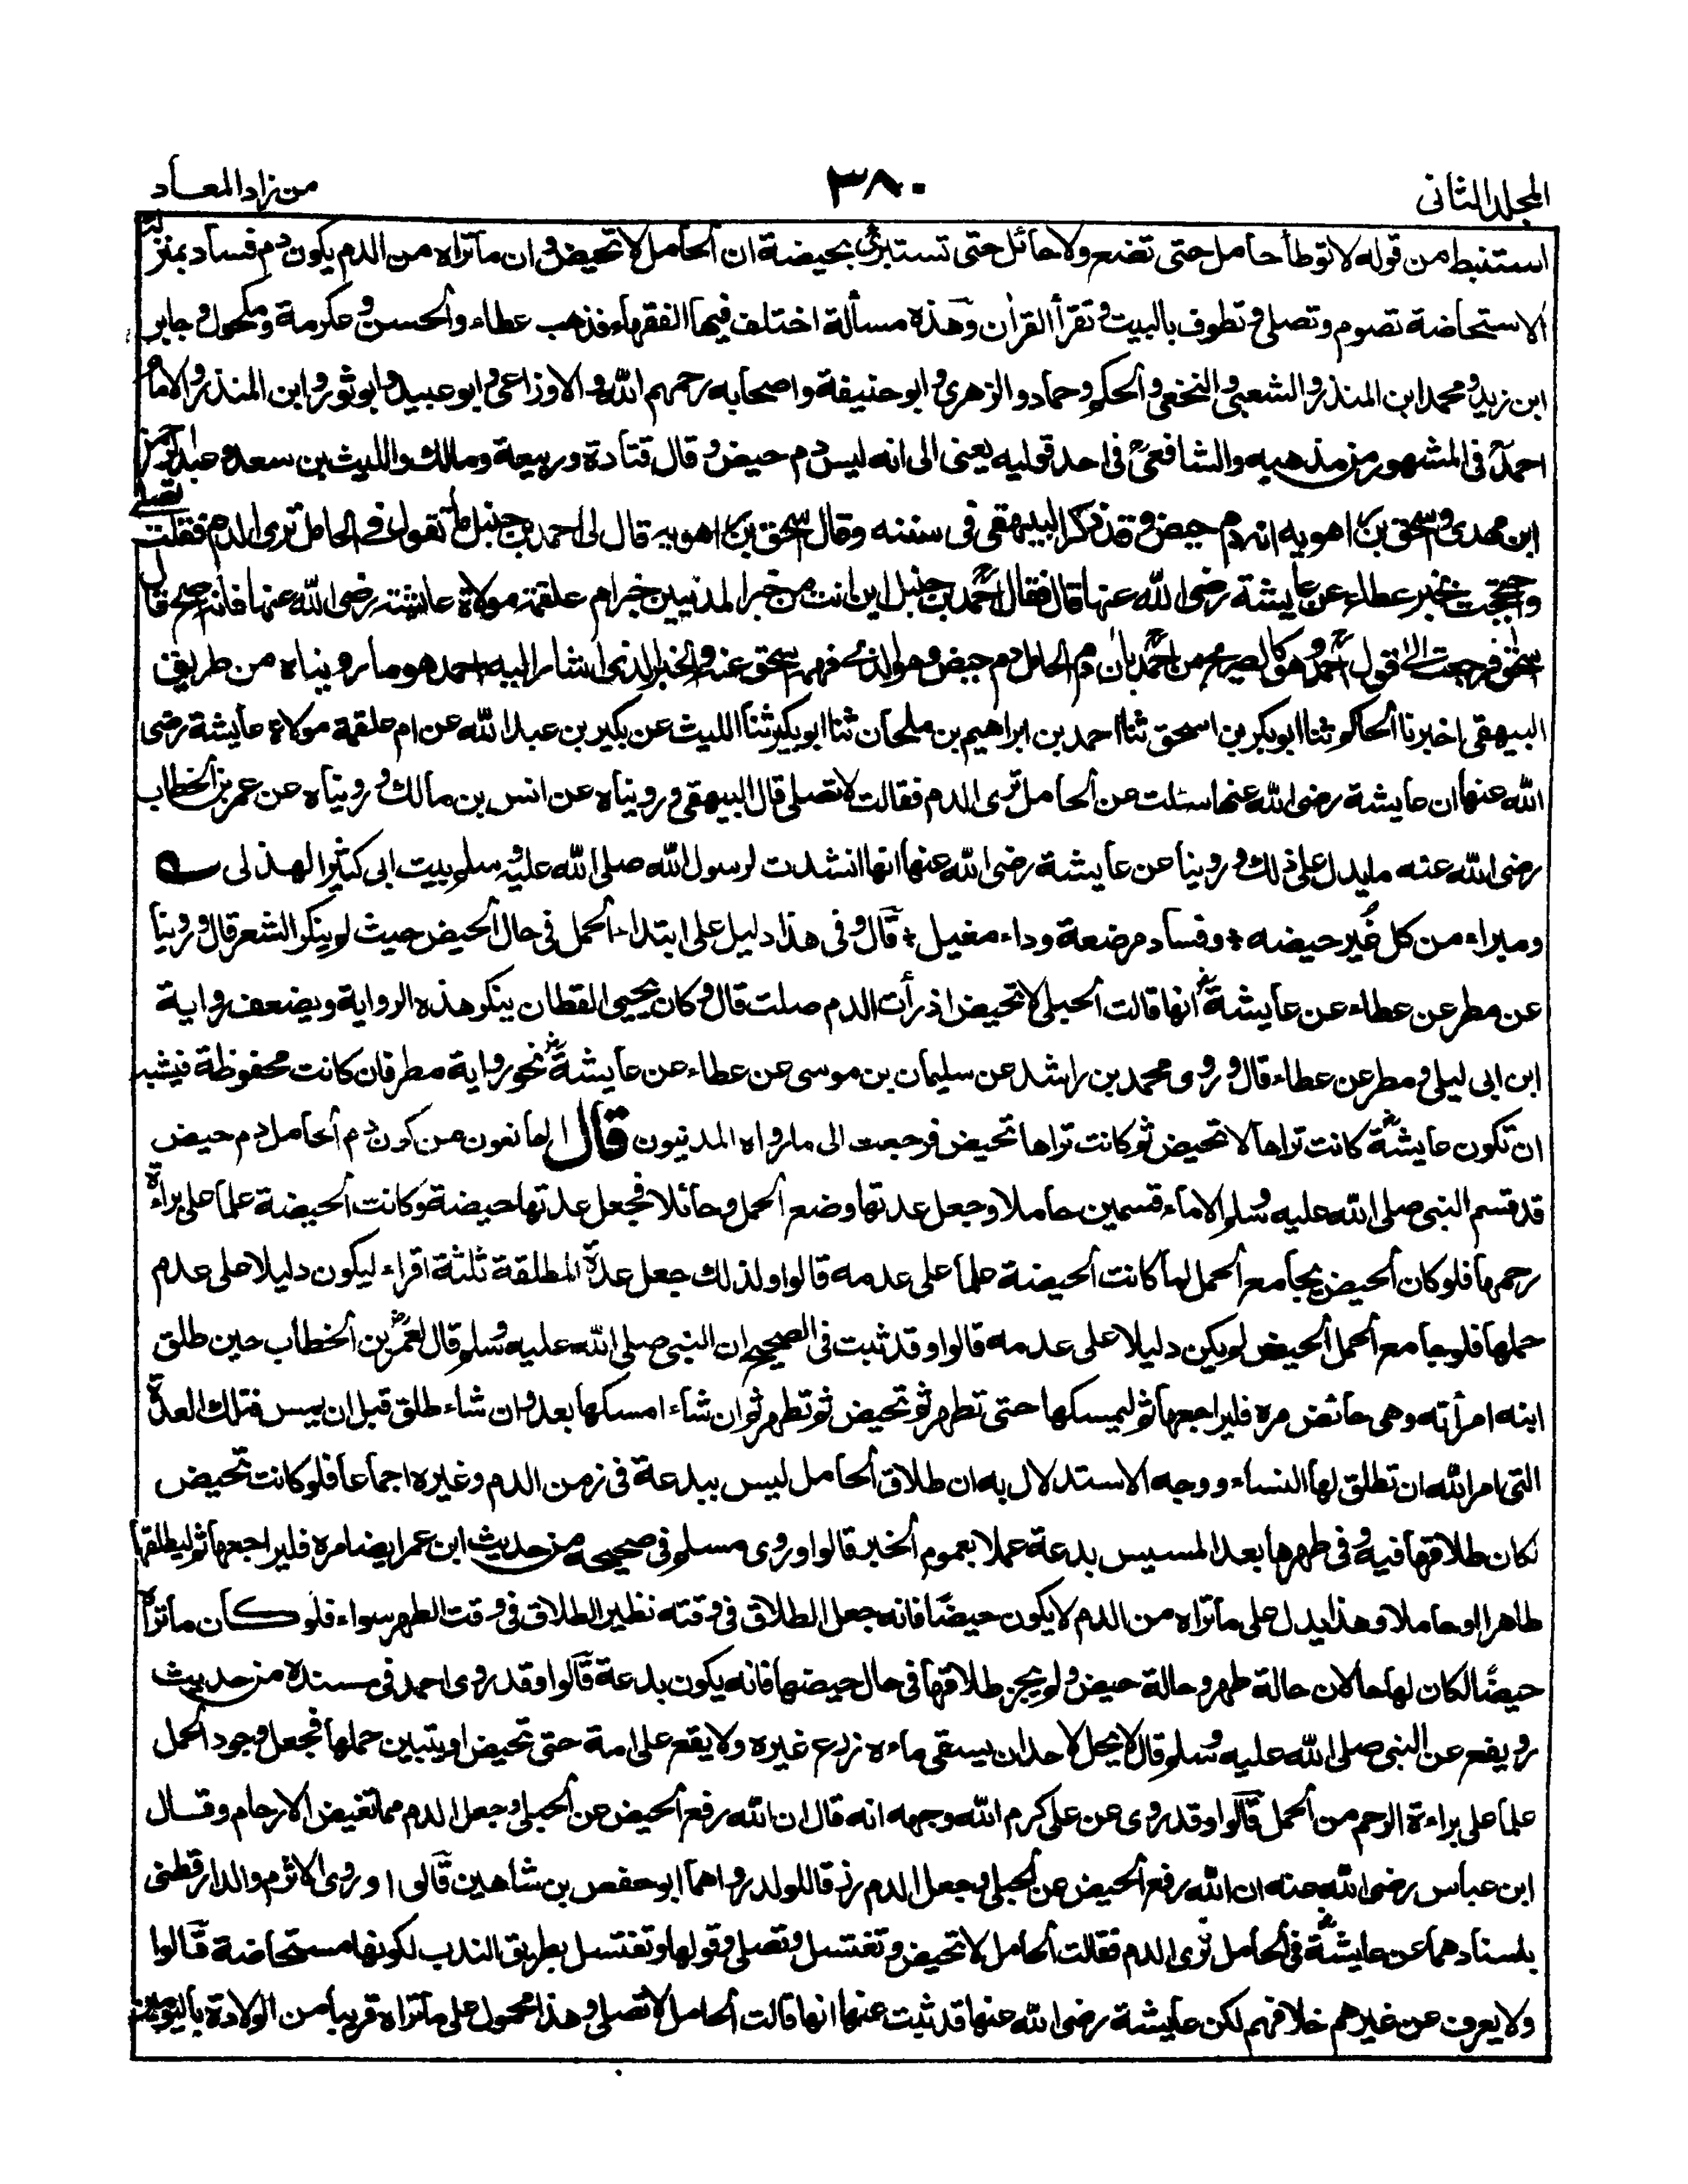 المجلد الثانى
٣٨٠
من زاد المعاد
استنبط من قوله لا توطأ حامل حتى تضع ولا حائل حتى تستبرئ بحيضة ان الحامل لا تحيض وان ما تراه من الدم يكون دم فساد بمنزلة
الاستحاضة تصوم وتصلى وتطوف بالبيت وتقرأ القرآن وهذه مسألة اختلف فيها الفقهاء فذهب عطاء والحسن وعكرمة ومكحول وجابر
ابن زيد ومحمد ابن المنذر والشعبى والنخعى والحكم وحماد والزهرى وابو حنيفة واصحابه رحمهم الله والاوزاعى وابو عبيد وابو ثور وابن المنذر والامام
احمد فى المشهور من مذهبه والشافعى فى احد قوليه يعنى الى انه ليس دم حيض وقال قتادة وربيعة ومالك والليث بن سعد وعبد الرحمن
ابن مهدى واسحق بن راهويه انه دم حيض وقد ذكر البيهقى فى سننه وقال اسحق بن راهويه قال لى احمد بن حنبل ما تقول فى الحامل ترى الدم فقلت تصلى
واحتججت بخبر عطاء عن عايشة رضى الله عنها قال فقال احمد بن حنبل اين انت من خبر المدنيين خبر ام علقمة مولاة عايشة رضى الله عنها فانه اصح قال
اسحق فرجعت الى قول احمد وهو كالصريح من احمد بان دم الحامل دم حيض وهو الذى فهمه اسحق عنه والخبر الذى اشار اليه احمد هو ما رويناه من طريق
البيهقى اخبرنا الحاكم ثنا ابو بكر بن اسحق ثنا احمد بن ابراهيم بن ملحان ثنا ابو بكير ثنا الليث عن بكير بن عبد الله عن ام علقمة مولاة عايشة رضى
الله عنها ان عايشة رضى الله عنها سئلت عن الحامل ترى الدم فقالت لا تصلى قال البيهقى ورويناه عن انس بن مالك ورويناه عن عمر بن الخطاب
رضى الله عنه ما يدل على ذلك وروينا عن عايشة رضى الله عنها انها انشدت لرسول الله صلى الله عليه وسلم بيت ابى كثير الهذلى
ومبراء من كل غبر حيضه ؛ وفساد مرضعة وداء مغيل ؛ قال وفى هذا دليل على ابتداء الحمل فى حال الحيض حيث لم ينكر الشعر قال وروينا
عن مطر عن عطاء عن عايشة انها قالت الحبلى لا تحيض اذ رأت الدم صلت قال وكان يحيى القطان ينكر هذه الرواية ويضعف رواية
ابن ابى ليلى ومطر عن عطاء قال وروى محمد بن راشد عن سليمان بن موسى عن عطاء عن عايشة نحو رواية مطر فان كانت محفوظة فيشبه
ان تكون عايشة كانت تراها لا تحيض ثم كانت تراها تحيض فرجعت الى ما رواه المدنيون قال المانعون من كون دم الحامل دم حيض
قد قسم النبى صلى الله عليه وسلم الاماء قسمين حاملا وجعل عدتها وضع الحمل وحائلا فجعل عدتها حيضة وكانت الحيضة علما على براءة
رحمها فلو كان الحيض يجامع الحمل لما كانت الحيضة علما على عدمه قالوا ولذلك جعل عدة المطلقة ثلثة اقراء ليكون دليلا على عدم
حملها فلو جامع الحمل الحيض لم يكن دليلا على عدمه قالوا وقد ثبت فى الصحيح ان النبى صلى الله عليه وسلم قال لعمر بن الخطاب حين طلق
ابنه امرأته وهى حائض مره فليراجعها ثم ليمسكها حتى تطهر ثم تحيض ثم تطهر ثم ان شاء امسكها بعد وان شاء طلق قبل ان يمس فتلك العدة
التى امر الله ان تطلق لها النساء ووجه الاستدلال به ان طلاق الحامل ليس ببدعة فى زمن الدم وغيره اجماعا فلو كانت تحيض
لكان طلاقها فيه وفى طهرها بعد المسيس بدعة عملا بعموم الخبر قالوا وروى مسلم فى صحيحه من حديث ابن عمر ايضا مره فليراجعها ثم ليطلقها
طاهرا او حاملا وهذا يدل على ما تراه من الدم لا يكون حيضا فانه جعل الطلاق فى وقته نظير الطلاق فى وقت الطهر سواء فلو كان ما تراه
حيضا لكان لها حالان حالة طهر وحالة حيض ولم يجز طلاقها فى حال حيضها فانه يكون بدعة قالوا وقد روى احمد فى مسنده من حديث
رويفع عن النبى صلى الله عليه وسلم قال لا يحل لاحد ان يسقى ماءه زرع غيره ولا يقع على امة حتى تحيض او يتبين حملها فجعل وجود الحمل
علما على براءة الرحم من الحمل قالوا وقد روى عن على كرم الله وجهه انه قال ان الله رفع الحيض عن الحبلى وجعل الدم مما تغيض الارحام وقال
ابن عباس رضى الله عنه ان الله رفع الحيض عن الحبلى وجعل الدم رزقا للولد رواهما ابو حفص بن شاهين قالوا وروى الاثرم والدارقطنى
باسنادهما عن عايشة فى الحامل ترى الدم فقالت الحامل لا تحيض وتغتسل وتصلى وقولها وتغتسل بطريق الندب لكونها مستحاضة قالوا
ولا يعرف عن غيرهم خلافهم لكن عايشة رضى الله عنها قد ثبت عنها انها قالت الحامل لا تصلى وهذا محمول على ما تراه قريبا من الولادة باليومين